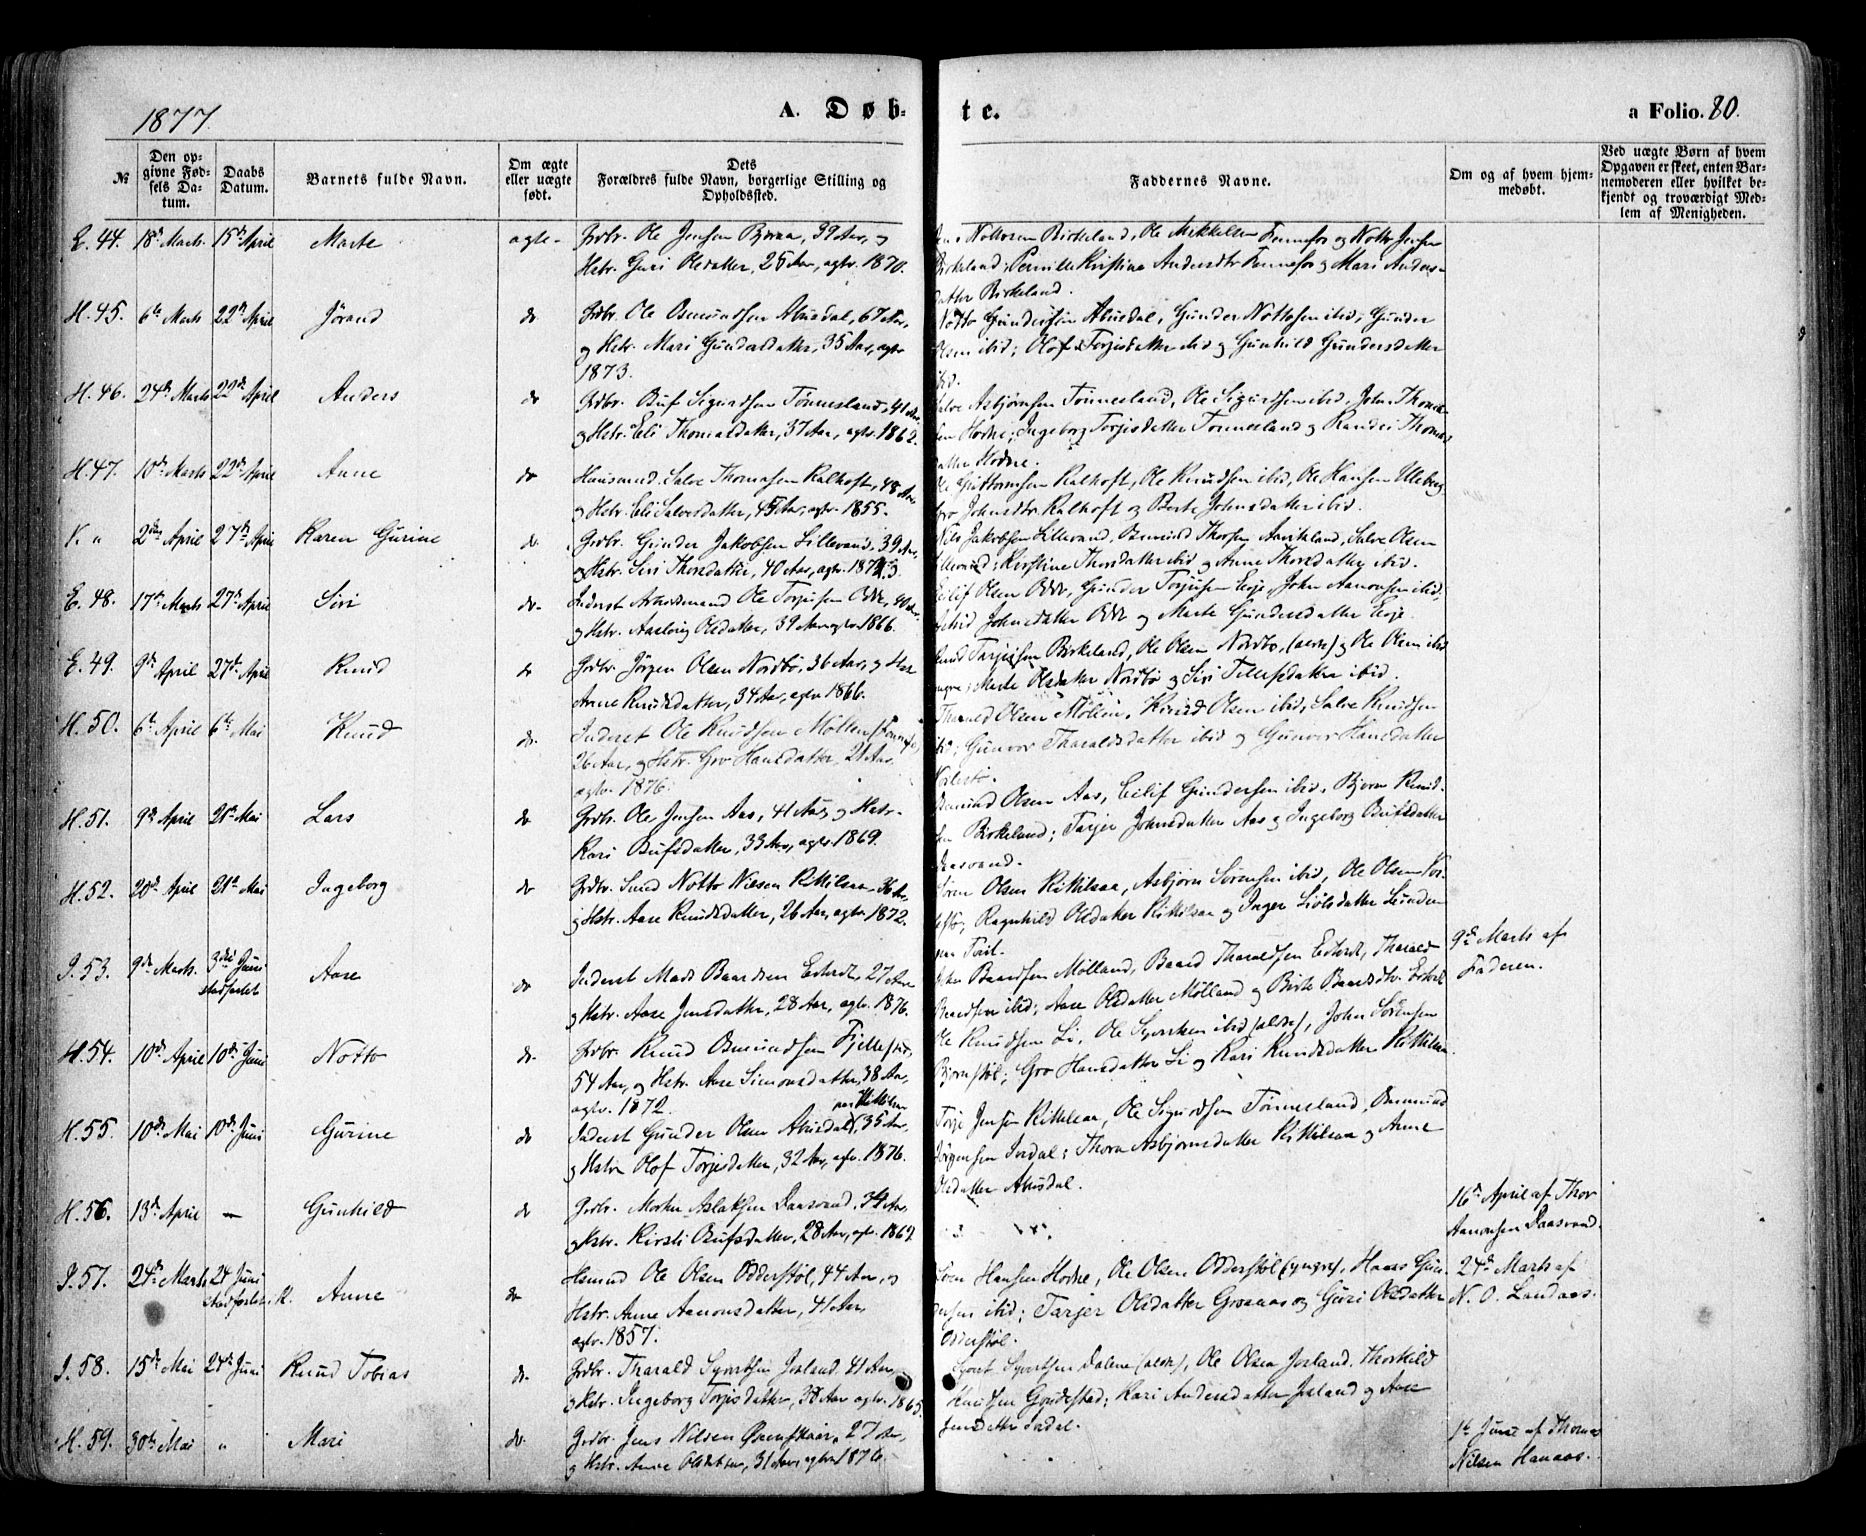 1877.
A. Døb-
te.
a Folio. 80.
№
Den op-
givne Fød-
sels Da-
tum.
Daabs
Datum.
Barnets fulde Navn.
Om ægte
eller uægte
født.
Dets
Forældres fulde Navn, borgerlige Stilling og
Opholdssted.
Faddernes Navne.
Om og af hvem hjem-
medøbt.
Ved uægte Børn af hvem
Opgaven er skeet, enten Bar-
nemoderen eller hvilket be-
kjendt og troværdigt Med-
lem af Menigheden.
E. 44. 18de Marts. 15de April Marte ægte- Grdbr. Ole Jensen Bjoraa, 39 Aar, og
Hstr. Guri Olsdatter, 25 Aar, agtv. 1870.
Jens Nottosen Birkeland, Ole Mikkelsen Fennefos og Notto Jensen
Birkeland; Pernille Kristine Andersdtr Fennefos og Mari Anders-
datter Birkeland.
H. 45. 6te Marts 22de April Jörand do Grdbr. Ole Osmundsen Abusdal, 67 Aar,
og Hstr. Mari Gundersdatter, 35 Aar, agtv
1873.
Notto Gundersen Abusdal, Gunder Nottosen ibid, Gunder
Olsen ibid; Olof Torjisdatter ibid og Gunhild Gundersdatter
ibid.
H. 46. 24de Marts 22de April Anders do Grdbr. Buf Sigurdsen Tønnesland, 41 Aar
og Hstr. Eli Thomasdatter, 37 Aar, agtv. 1862.
Salve Asbjørnsen Tønnesland, Ole Sigurdsen ibid, John Thomas-
sen Hodne; Ingeborg Torjisdatter Tønnesland og Randei Thomas
datter Hodne.
H. 47. 10de Marts 22de April Anne do Huusmand Salve Thomasen Kalhoft, 48 Aar
og Hstr. Eli Salvesdatter, 45 Aar, agtv. 1855.
Ole Guttormsen Kalhoft, Ole Knudsen ibid, Ole Hansen Uleberg,
Gro Johnsdtr. Kalhoft og Berte Johnsdatter ibid.
V. " 2den April 27de April Karen Gurine do. Grdbr. Gunder Jakobsen Lillevand, 39 Aar,
og Hstr. Siri Thorsdatter, 40 Aar, agtv. 1873
Nils Jakobsen Lillevand, Osmund Thorsen Aavikland, Salve Olsen
Lillevand; Kirstine Thorsdatter ibid og Anne Thorsdatter ibid.
E. 48. 17de Marts 27de April Siri do. Inderst Arbeidsmand Ole Torjusen Odde, 40 Aar,
og Hstr. Aaslaug Olsdatter, 39 Aar agtv. 1866.
Eilif Olsen Odde, Gunder Torjusen Eieje, John Aanonsen ibid;
Johnsdatter Odde og Marte Gundersdatter Eieje.
E. 49. 9de April 27de April Knud do Grdbr. Jörgen Olsen Nordbö, 36 Aar, og Hstr
Anne Knudsdatter, 34 Aar, agtv. 1866.
Knud Tarjeisen Birkeland, Ole Olsen Nordbö, (ældre) og Ole Olsen ibid
yngre; Marte Olsdatter Nordbö og Siri Tellefsdatter ibid.
H. 50. 6te April 6te Mai Knud do. Inderst Ole Knudsen Möllen (Fennefos)
26 Aar, og Hstr. Gro Hansdatter, 21 Aar,
agtv. 1876.
Tharald Olsen Möllen, Knud Olsen ibid, Salve Knudsen
ibid; Gunvor Tharaldsdatter ibid og Gunvor Hansdatter
H. 51. 9de April 21de Mai Lars do Grdbr. Ole Jensen Aas, 41 Aar, og Hstr.
Kari Bufsdatter, 33 Aar, agtv. 1869.
Osmund Olsen Aas, Eilif Gundersen ibid, Bjorn Knud-
sen Birkeland; Tarjer Johnsdatter Aas og Ingeborg Bufsdatter
Daasvand.
H. 52. 20de April 21de Mai Ingeborg do Grdbr. Smed Notto Nielsen Kittilsaa 36 Aar,
og Hstr. Aase Knudsdatter, 26 Aar, agtv. 1872.
Sören Olsen Kittilsaa, Asbjørn Sörensen ibid, Ole Olsen
Ragnhild Olsdatter Kittilsaa og Inger Lövlsdatter
I. 53. 9de Marts. 3die Juni
stadfæstet Aase do Inderst Mads Baardsen Eshtedt, 27 Aar
og Hstr. Aase Jensdatter, 28 Aar, agtv. 1876.
John Baardsen Mölland, Baard Tharaldsen, Tharald
Baardsen ibid; Aase Olsdatter Mölland og Birte Baardsdtr.
9de Marts af
Faderen.
H. 54. 10de April 10de Juni Notto do. Grdbr. Knud Osmundsen Fjellestad,
54 Aar, og Hstr. Aase Simonsdatter, 38 Aar,
agtv. 1872.
Ole Knudsen Li, Ole Syvertsen ibid (ældre), John Sörensen
Bjørnstöl; Gro Hansdatter Li og Kari Knudsdatter Kittilsaa.
H. 55. 10de Mai 10de Juni Gurine do Inderst Gunder Olsen Abusdal, paa Kittilsaa 35 Aar,
og Hstr Olof Torjisdatter, 32 Aar, agtv. 1876.
Torje Jensen Kittilsaa, Ole Sigurdsen Tønnesland, Osmund
Jörgensen Jordal; Thora Asbjørnsdatter Kittilsaa og Anne
Olsdatter Abusdal.
H. 56. 13de April — Gunhild do Grdbr. Morten Aslaksen Daasvand, 34 Aar,
og Hstr. Kirsti Bufsdatter, 28 Aar, agtv. 1869.
16de April af Thor
Aanonsen Daasvand.
I. 57. 24de Marts 24 Juni
stadfæstet. K. Anne do Hsmnd Ole Olsen Odderstöl, 44 Aar, og
Hstr. Anne Aanonsdatter, 41 Aar,
agtv. 1857.
Sven Hansen Hodne, Ole Olsen Odderstöl (yngre), Haaas Gun-
dersen ibid; Tarjer Olsdatter Groaas og Guri Olsdatter
Odderstöl.
24de Marts af
N. O. Landaas.
I. 58. 15de Mai 24de Juni Knud Tobias do. Grdbr. Tharald Syvertsen Josland 41 Aar
og Hstr. Ingeborg Torjisdatter, 38 Aar agtv. 1865.
Syvert Syvertsen Dalene (ældre), Ole Olsen Josland, Thorkild
Knudsen Gyldestad; Kari Andersdatter Josland og Aase
Jensdatter Jordal.
H. 59. 30te Mai " Mari do. Grdbr. Jens Nilsen Øvenskaar, 27 Aar,
og Hstr. Anne Olsdatter, 31 Aar, agtv 1876.
1te Juni af Thomas
Nilsen Hanaas.